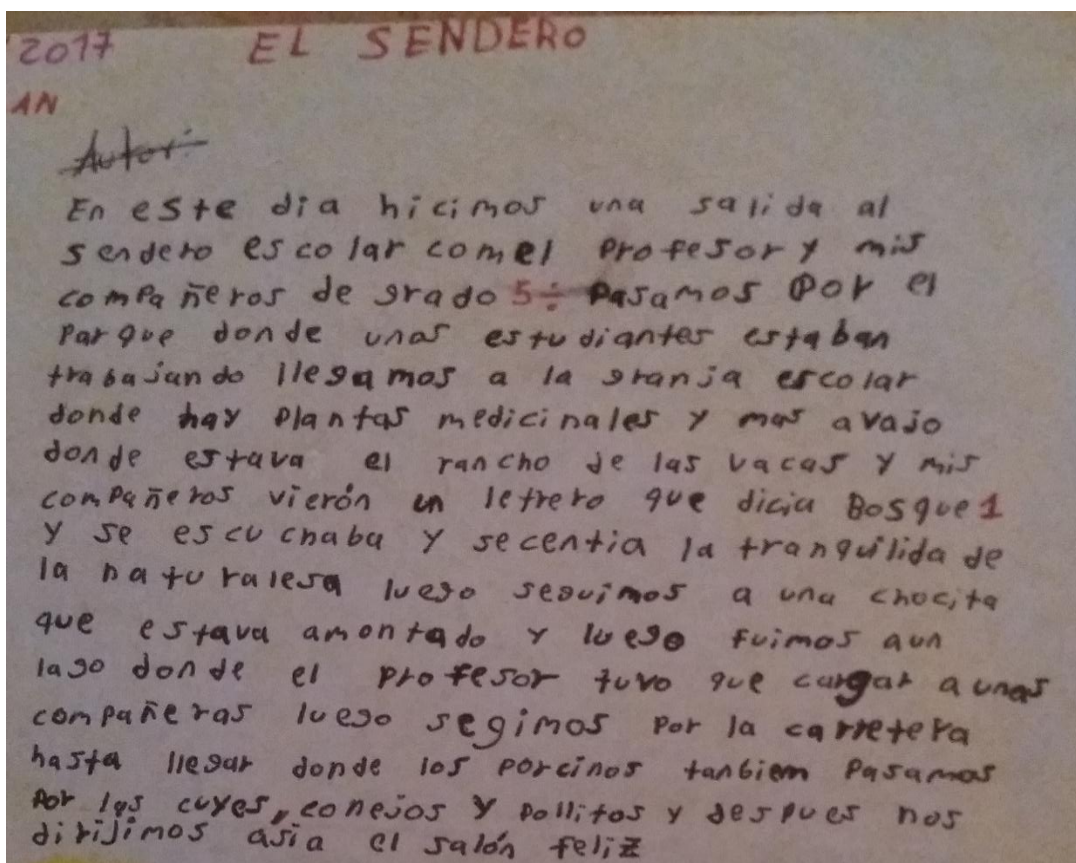 2017 EL SENDERO
AN
Autor:
En este dia hicimos una salida al
sendero escolar comel profesor y mis
compañeros de grado 5÷ pasamos por el
parque donde unos estudiantes estaban
trabajando llegamos a la granja escolar
donde hay plantas medicinales y mas avajo
donde estava el rancho de las vacas y mis
compañeros vierón un letrero que dicia Bosque 1
y se escuchaba y secentia la tranquilida de
la naturalesa luego seguimos a una chocita
que estava amontado y luego fuimos aun
lago donde el profesor tuvo que cargar a unas
compañeras luego segimos por la carretera
hasta llegar donde los porcinos tanbiem pasamos
por los cuyes, conejos y pollitos y despues nos
dirijimos asia el salón feliz